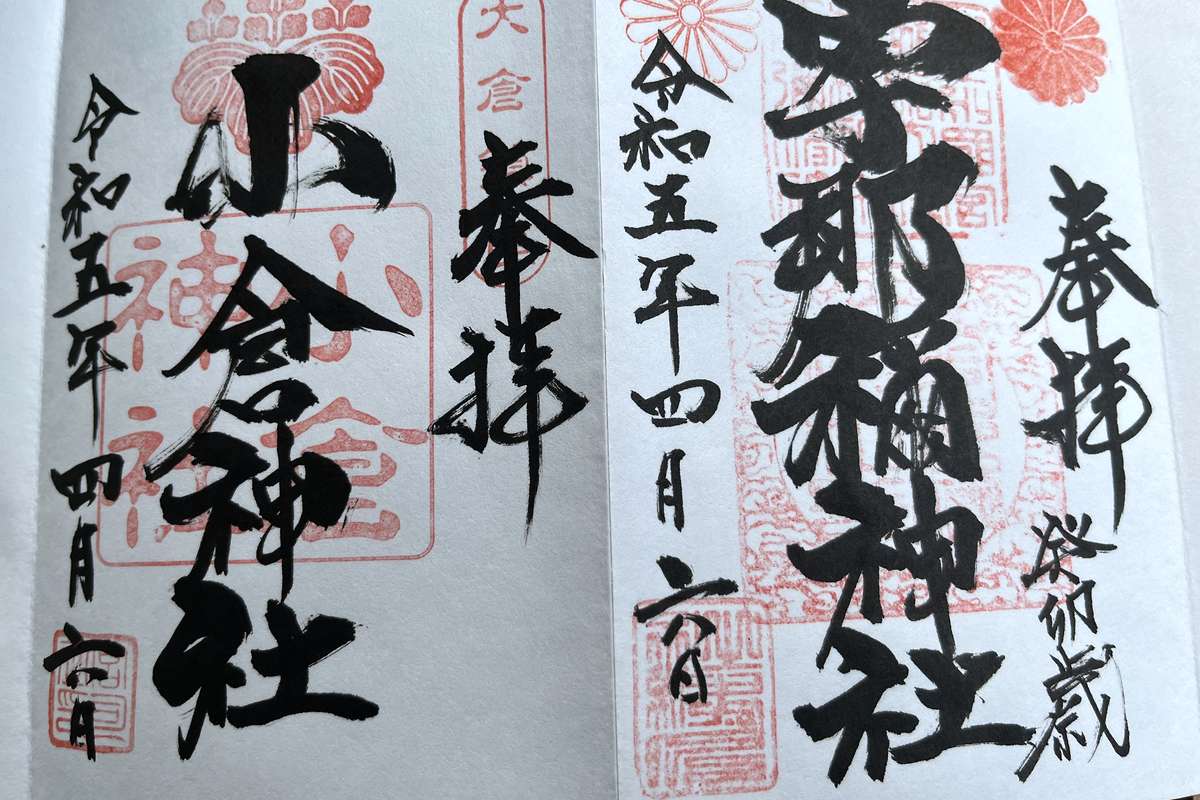 奉拝 癸卯歳
宇那禰神社
令和五年四月六日
奉拝
大倉
小倉神社
小倉
神社
令和五年四月六日